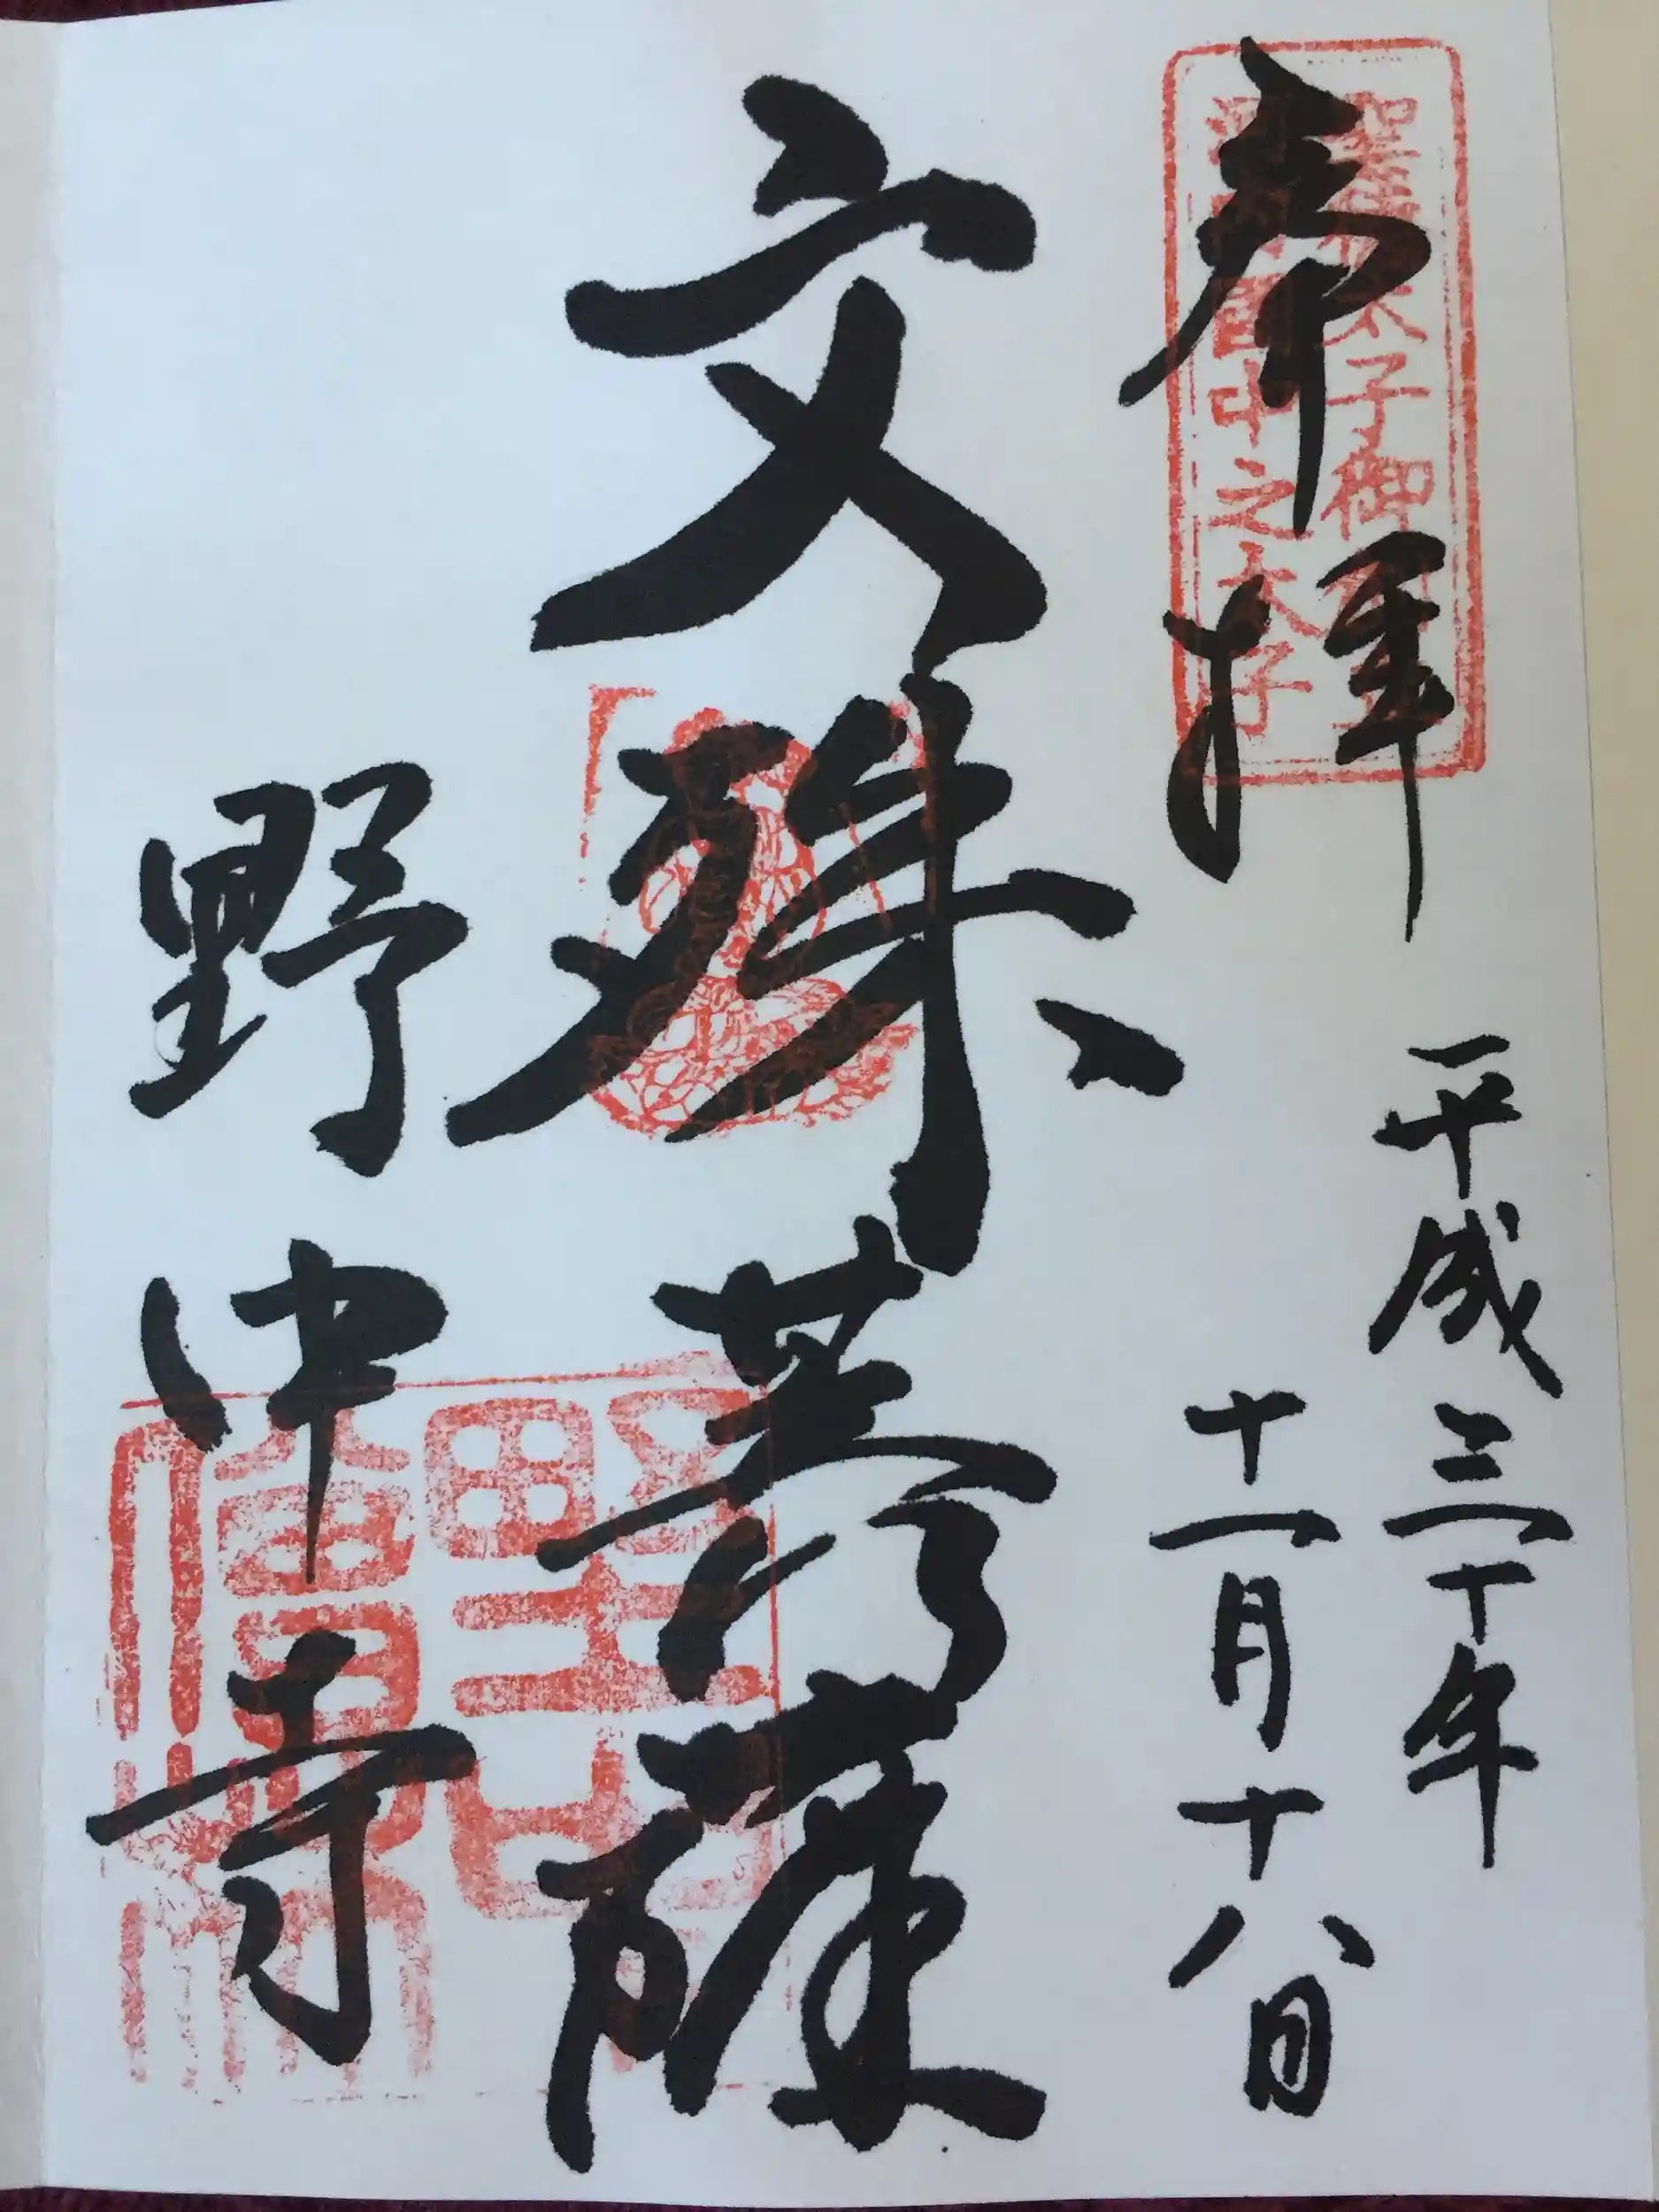 奉拝
聖徳太子御
河内国中之太子
平成三十年
十一月十八日
文殊菩薩
野中寺